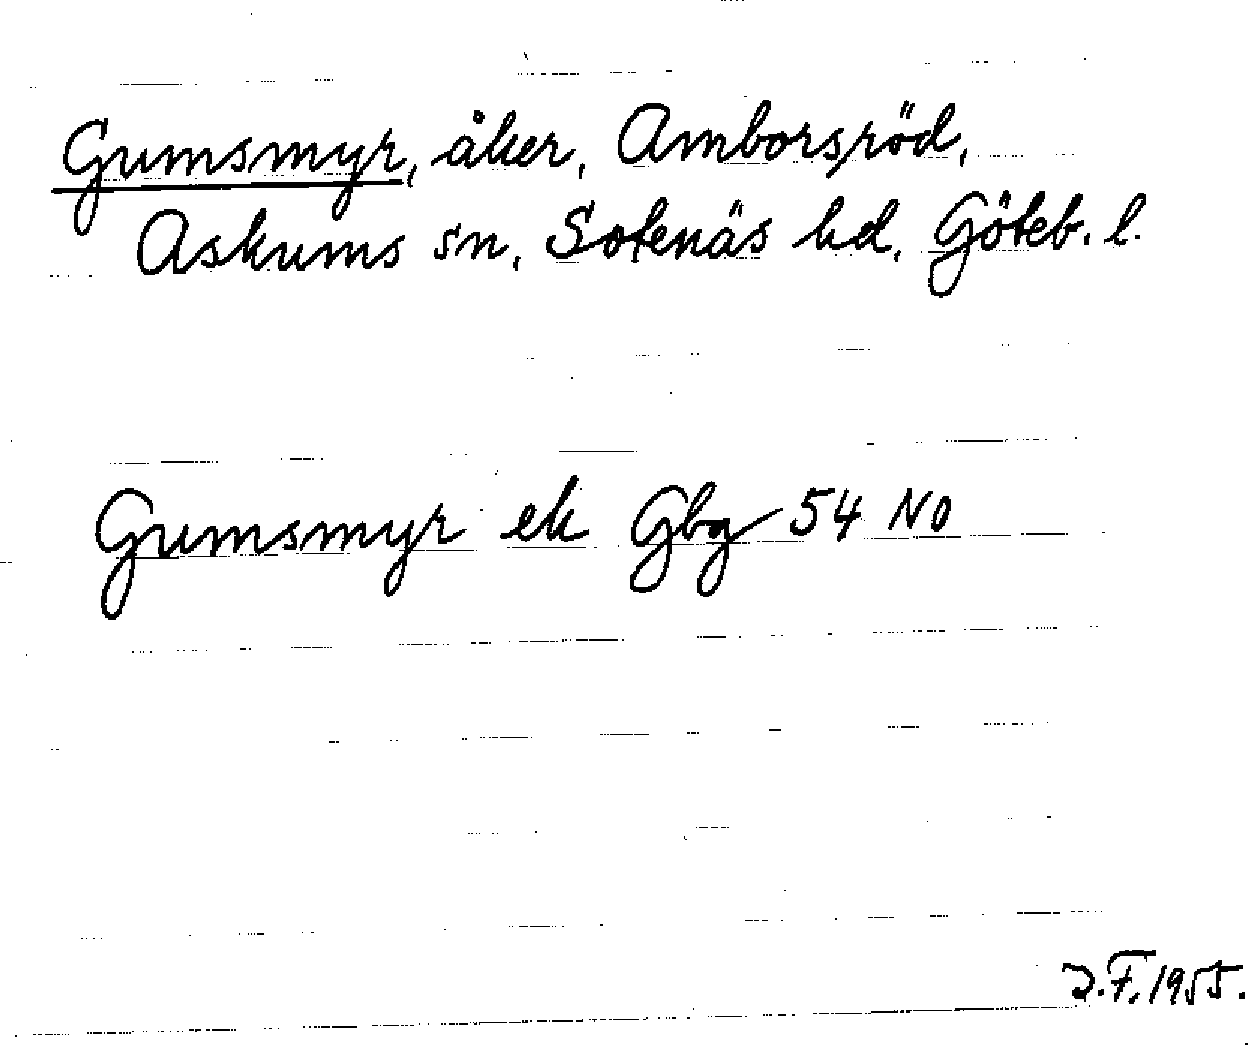 Gumsmyr, åker, Amborsröd,
Askums sn, Sotenäs hd, Göteb. l.
Gumsmyr ek Gbg 54 NO
J.F. 1955.